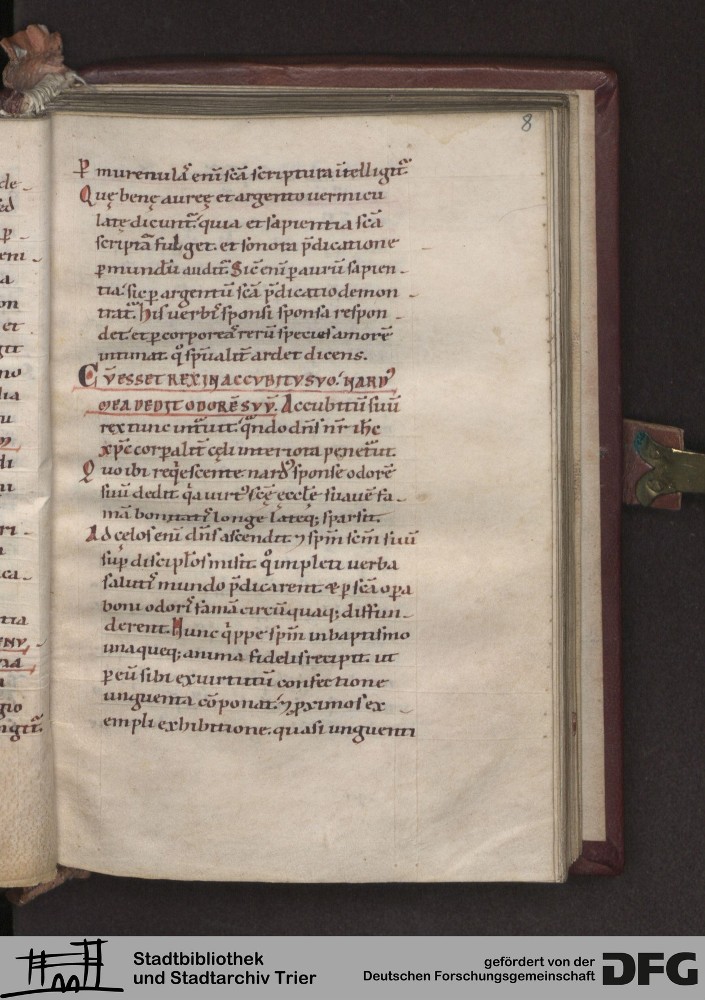 8
P murenulas enī scā scriptura ītelligit᷑.
Quę bene aureę et argento vermicu
latę dicunt᷑. quia et sapientia scā
scriptᷓa fulget. et sonora p̄dicatione
ꝑ mundū audit᷑. Sic̄ enī ꝑ aurū sapien-
tia. sic ꝑ argentū scā p̄dicatio demon-
strat᷑. His verbis sponsi sponsa respon-
det. et ꝑ corporeaꝝ rerū species amorē
intimat. q̊ spūalit᷑ ardet dicens.
CŪ ESSET REX IN ACCVBITV SVO. NARDꝰ
MEA DEDIT ODORĒ SVV̄. Accubitū suū
rex tunc intᷓuit. qᷓndo dn̄s nr̄ ihc
xp̄c corꝑalit᷑ cęli interiora penetᷓuit.
Quo ibi reqͥescente nardꝰ sponse odorē
suū dedit. qͣ virtꝰ scę̄ ecclē suavē fa-
mā bonitatis longe lateqꝫ sparsit.
Ad cęlos enī dn̄s ascendit. ⁊ spm̄ scm̄ suū
suꝑ discipłos misit. q̊ impleti verba
salutis mundo p̄dicarent. & ꝑ scā oꝑa
boni odoris famā circūquaqꝫ diffun-
derent. Hunc qͥppe spm̄ in baptismo
unaqueqꝫ anima fidelis recipit. ut
ꝑ eū sibi ex virtutū confectione
unguenta cōponat. ⁊ ꝓximos ex-
empli exhibitione. quasi unguenti
Stadtbibliothek
und Stadtarchiv Trier
gefördert von der
Deutschen Forschungsgemeinschaft
DFG